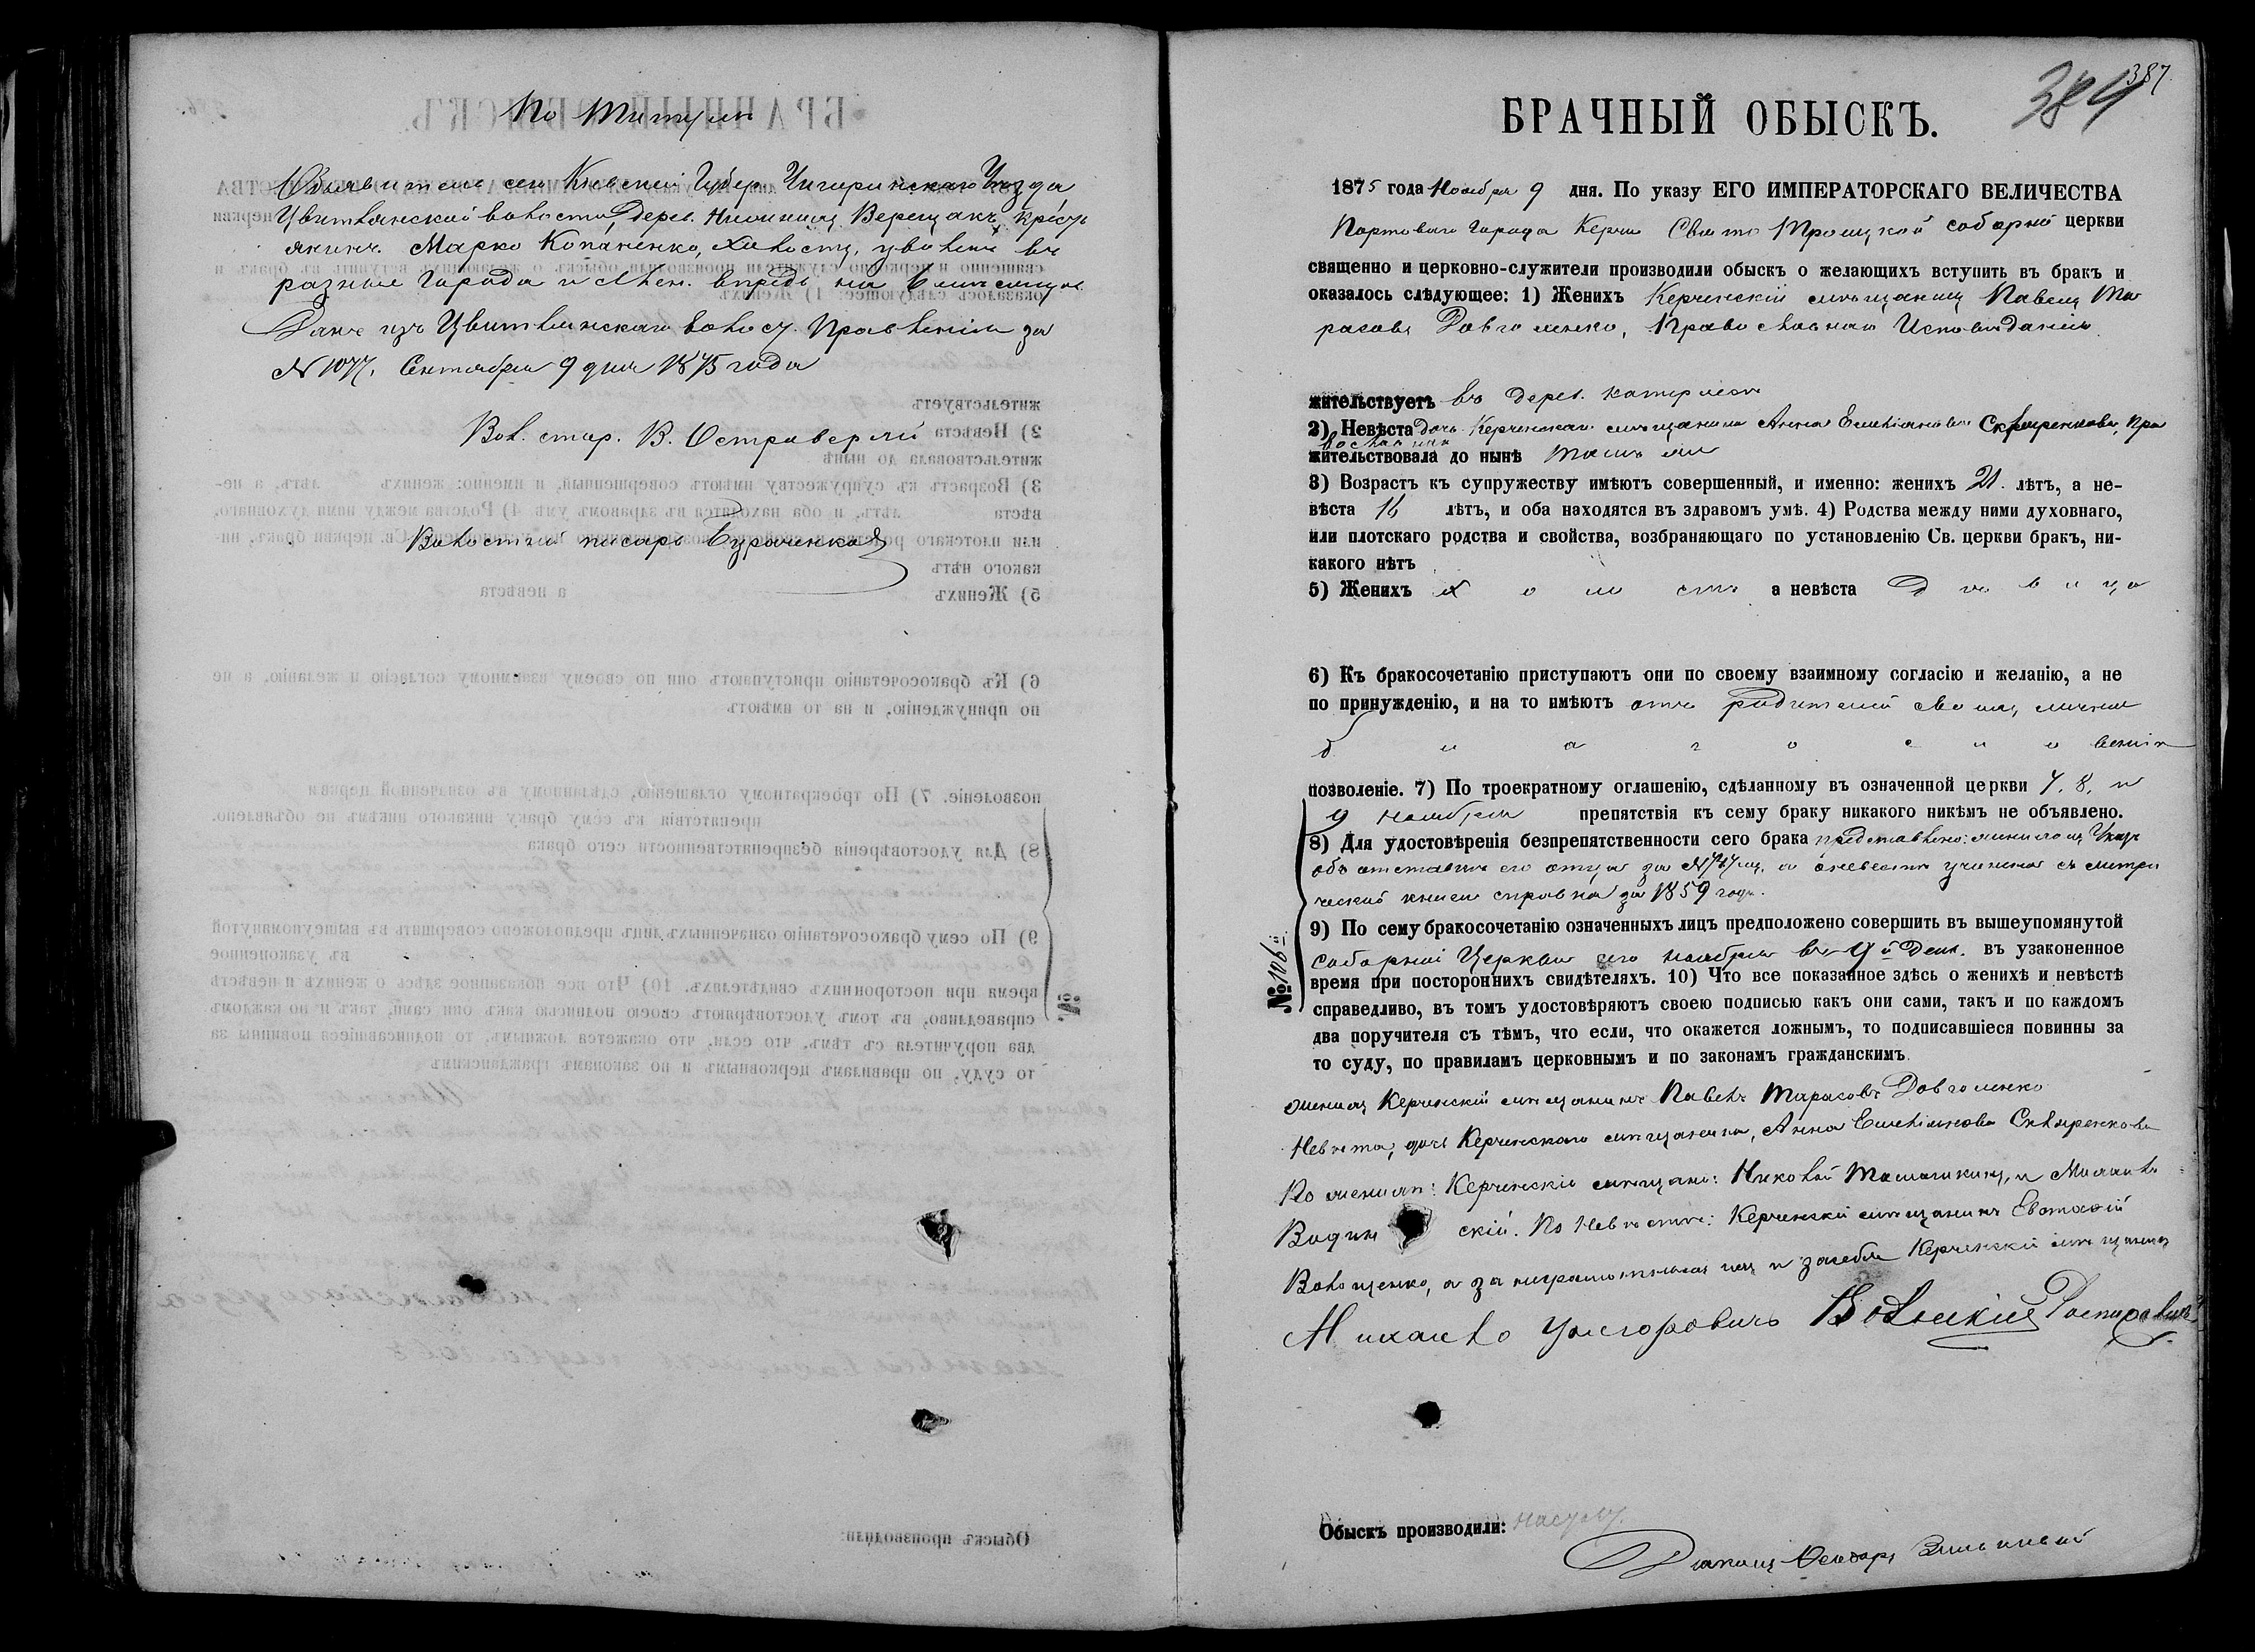 По титулѣ
Объявитель сего Кіевской Губер. Чигиринскаго Уѣзда
Цвитянской волости, дерев. Верещакъ, кресть
янинъ Марко Копаненко, холостъ, уволенъ въ
разные Города и впредь на 6 мѣсяцевъ
Данъ изъ Цвитнянскаго волост. Правленія за
№ 1077. Сентября 9 дня 1875 года
Вол. стар. В. Островерхій
Волостной писарь Бураченко
387
384
БРАЧНЫЙ ОБЫСКЪ.
1875 года Ноября 9 дня. По указу ЕГО ИМПЕРАТОРСКАГО ВЕЛИЧЕСТВА
Портоваго города Керчи Свято Троицкой соборной церкви
священно и церковно-служители производили обыскъ о желающихъ вступить въ бракъ и
оказалось слѣдующее: 1) Женихъ Керченскій мѣщанинъ Павелъ Та
расовъ Довгоменко, Православнаго Исповѣданія
жительствуетъ въ дерев. Катерлезѣ
2) Невѣста дочь Керченскаго мѣщанина Анна Емельянова Скляренкова, Пра
вославная
жительствовала до нынѣ тамъ же
3) Возрастъ къ супружеству имѣютъ совершенный, и именно: женихъ 21. лѣтъ, а не-
вѣста 16 лѣтъ, и оба находятся въ здравомъ умѣ. 4) Родства между ними духовнаго,
или плотскаго родства и свойства, возбраняющаго по установленію Св. церкви бракъ, ни-
какого нѣтъ
5) Женихъ холостъ а невѣста Дѣвица
6) Къ бракосочетанію приступаютъ они по своему взаимному согласію и желанію, а не
по принужденію, и на то имѣютъ отъ родителей своихъ личное
благословеніе
позволеніе. 7) По троекратному оглашенію, сдѣланному въ означенной церкви 7, 8, и
9 Ноября препятствія къ сему браку никакого никѣмъ не объявлено.
8) Для удостовѣренія безпрепятственности сего брака представлено: женихомъ Указъ
объ отставкѣ его отца за № а о невѣстѣ учинена съ метри
ческой книги справка за 1859 годъ.
9) По сему бракосочетанію означенныхъ лицъ предположено совершить въ вышеупомянутой
соборной Церкви сего ноября въ 9й день. въ узаконенное
№ 106й
время при постороннихъ свидѣтеляхъ. 10) Что все показанное здѣсь о женихѣ и невѣстѣ
справедливо, въ томъ удостовѣряютъ своею подписью какъ они сами, такъ и по каждомъ
два поручителя съ тѣмъ, что если, что окажется ложнымъ, то подписавшіеся повинны за
то суду, по правиламъ церковнымъ и по законамъ гражданскимъ
Женихъ Керченскій мѣщанинъ Павелъ Тарасовъ Довгоменко
Невѣста, дочь Керченскаго мѣщанина, Анна Емельянова Скляренкова
По женихѣ: Керченскіе мѣщане: Николай и Михаилъ
скій. По Невѣстѣ: Керченскій мѣщанинъ Евстафій
Волощенко, а за неграмотныхъ ихъ и за себя Керченскій мѣщанинъ
Михаило Григоровичъ росписался
Обыскъ производили:
Дьяконъ Ѳеодоръ